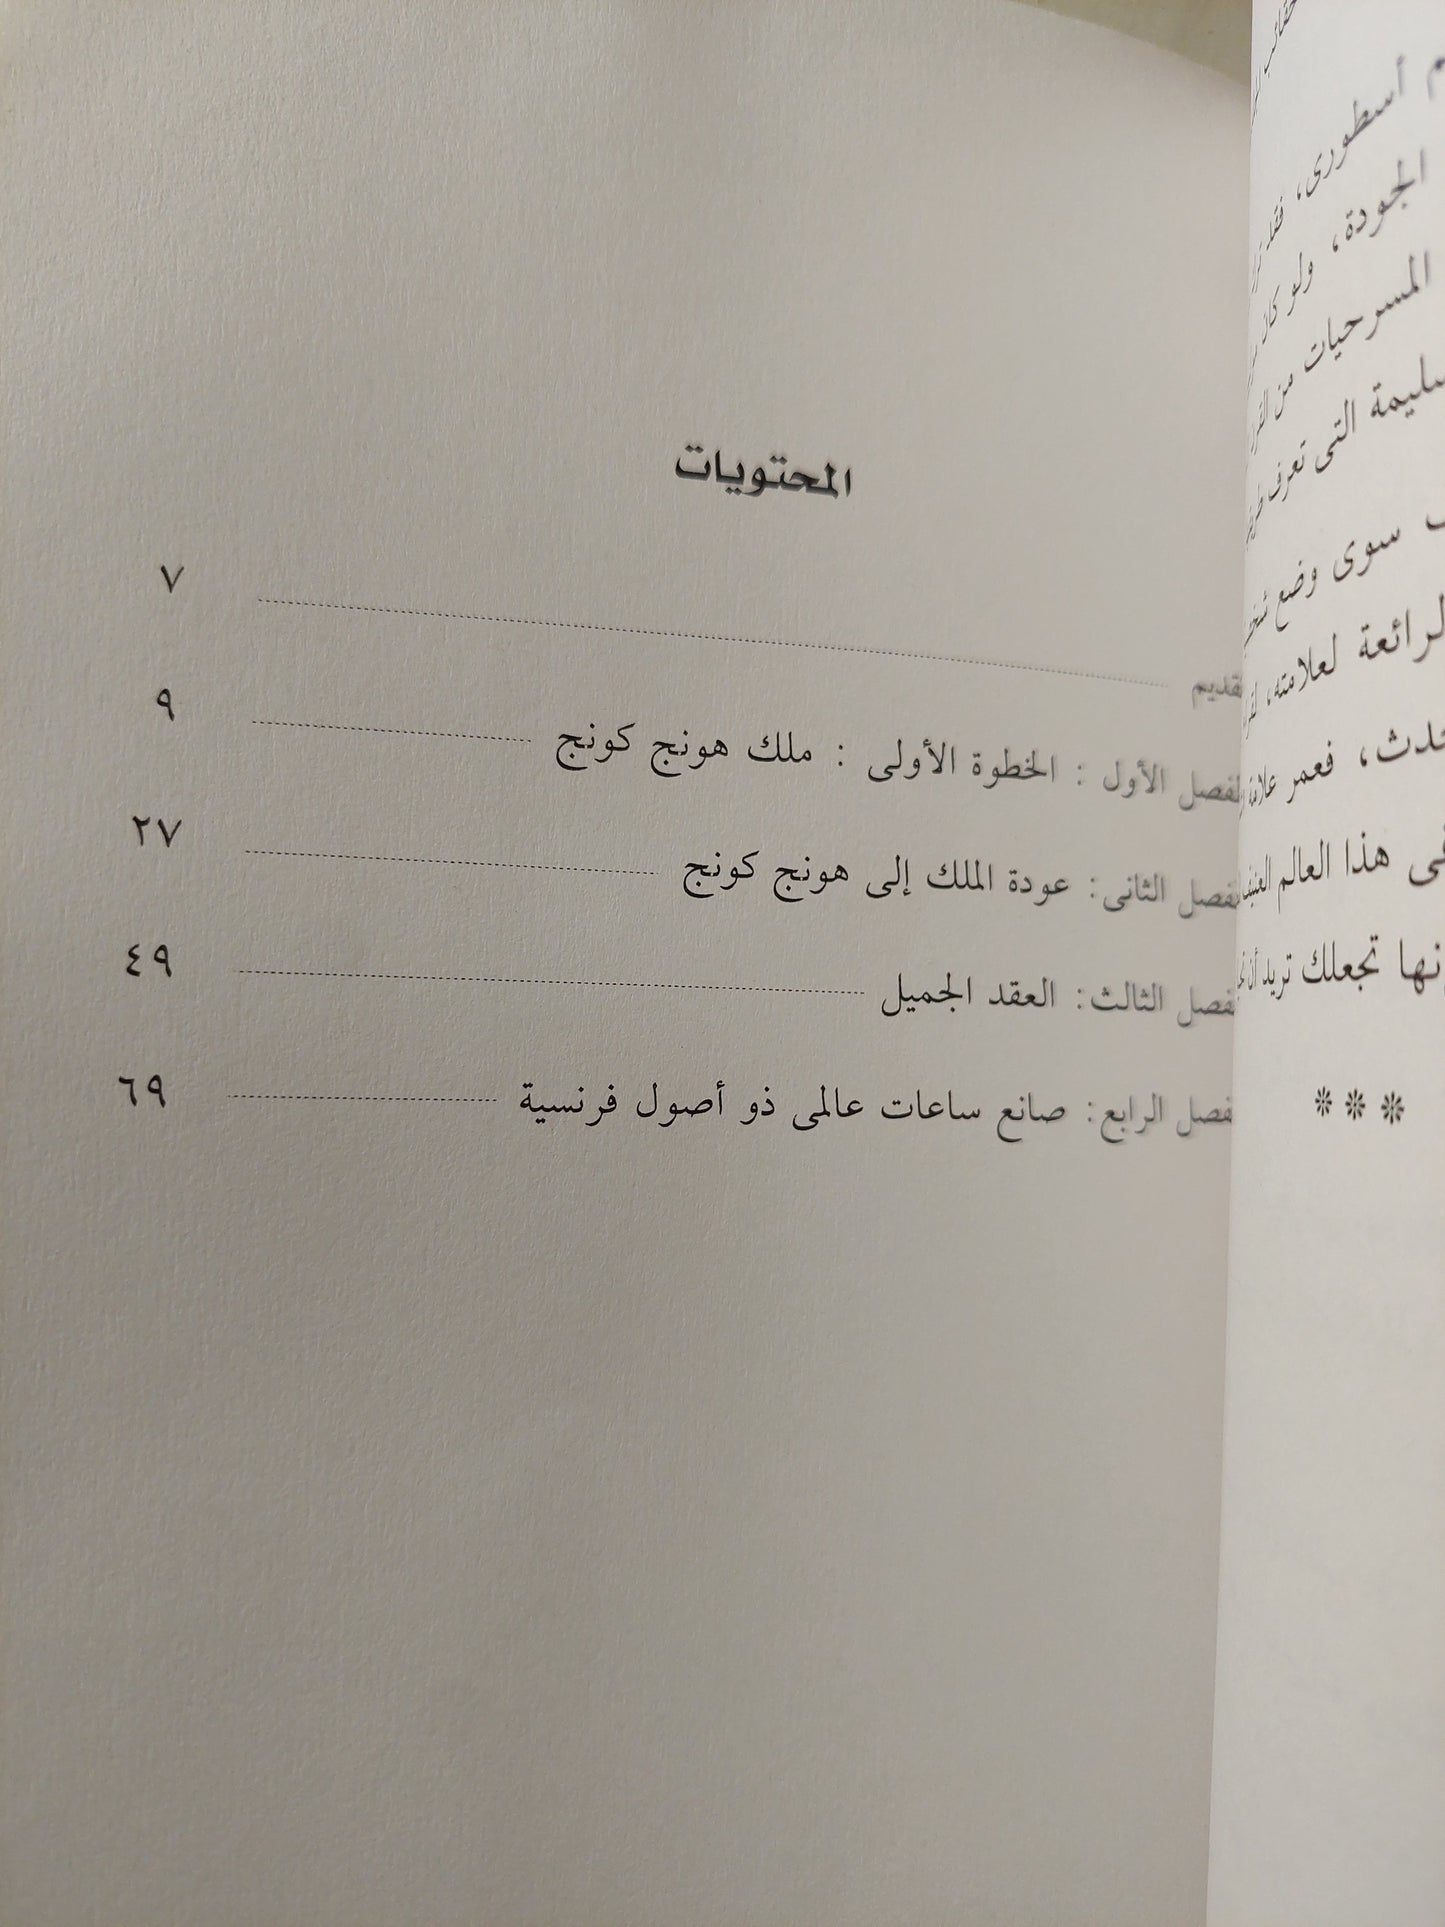 المحتويات
تقديم ٧
الفصل الأول : الخطوة الأولى : ملك هونج كونج ٩
الفصل الثانى: عودة الملك إلى هونج كونج ٢٧
الفصل الثالث: العقد الجميل ٤٩
الفصل الرابع: صانع ساعات عالمى ذو أصول فرنسية ٦٩
أسطورى، فقد
الجودة، ولو كان
المسرحيات من
التى تعرف
سوى وضع
الرائعة لعلامته،
فعمر علامة
هذا العالم
تجعلك تريد أن
***